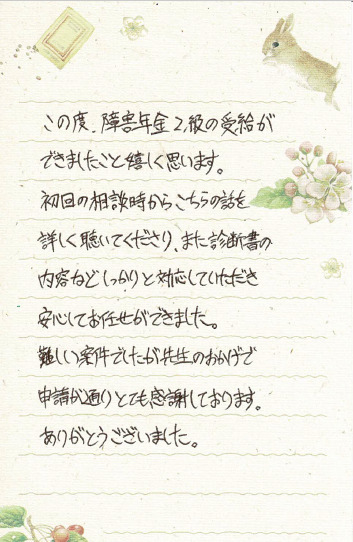 この度、障害年金2級の受給が
できましたこと嬉しく思います。
初回の相談時からこちらの話を
詳しく聴いてくださり、また診断書の
内容などしっかりと対応していただき
安心してお任せができました。
難しい案件でしたが先生のおかげで
申請が通りとても感謝しております。
ありがとうございました。